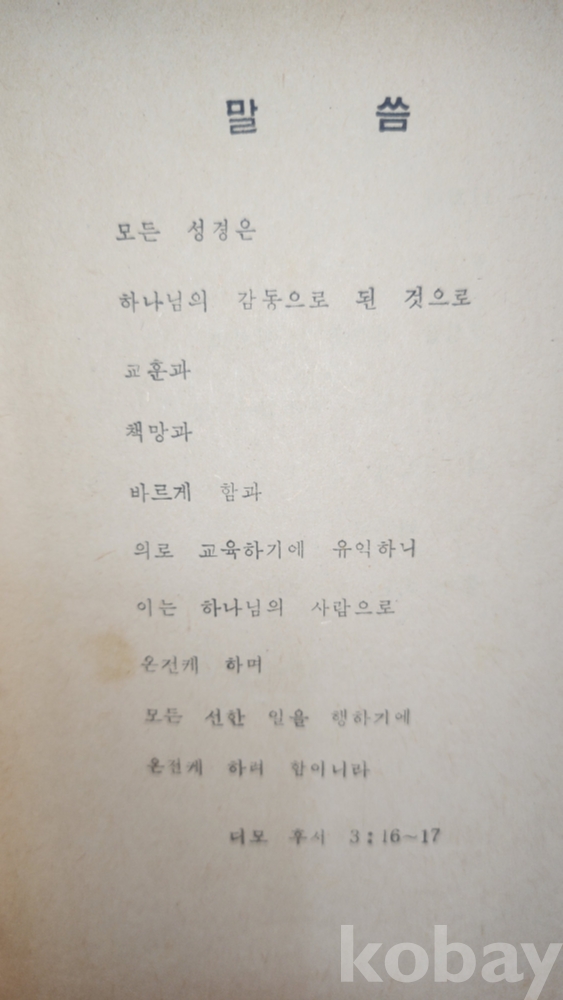 말 씀
모든 성경은
하나님의 감동으로 된 것으로
교훈과
책망과
바르게 함과
의로 교육하기에 유익하니
이는 하나님의 사람으로
온전케 하며
모든 선한 일을 행하기에
온전케 하려 함이니라
디모 후서 3:16~17
kobay